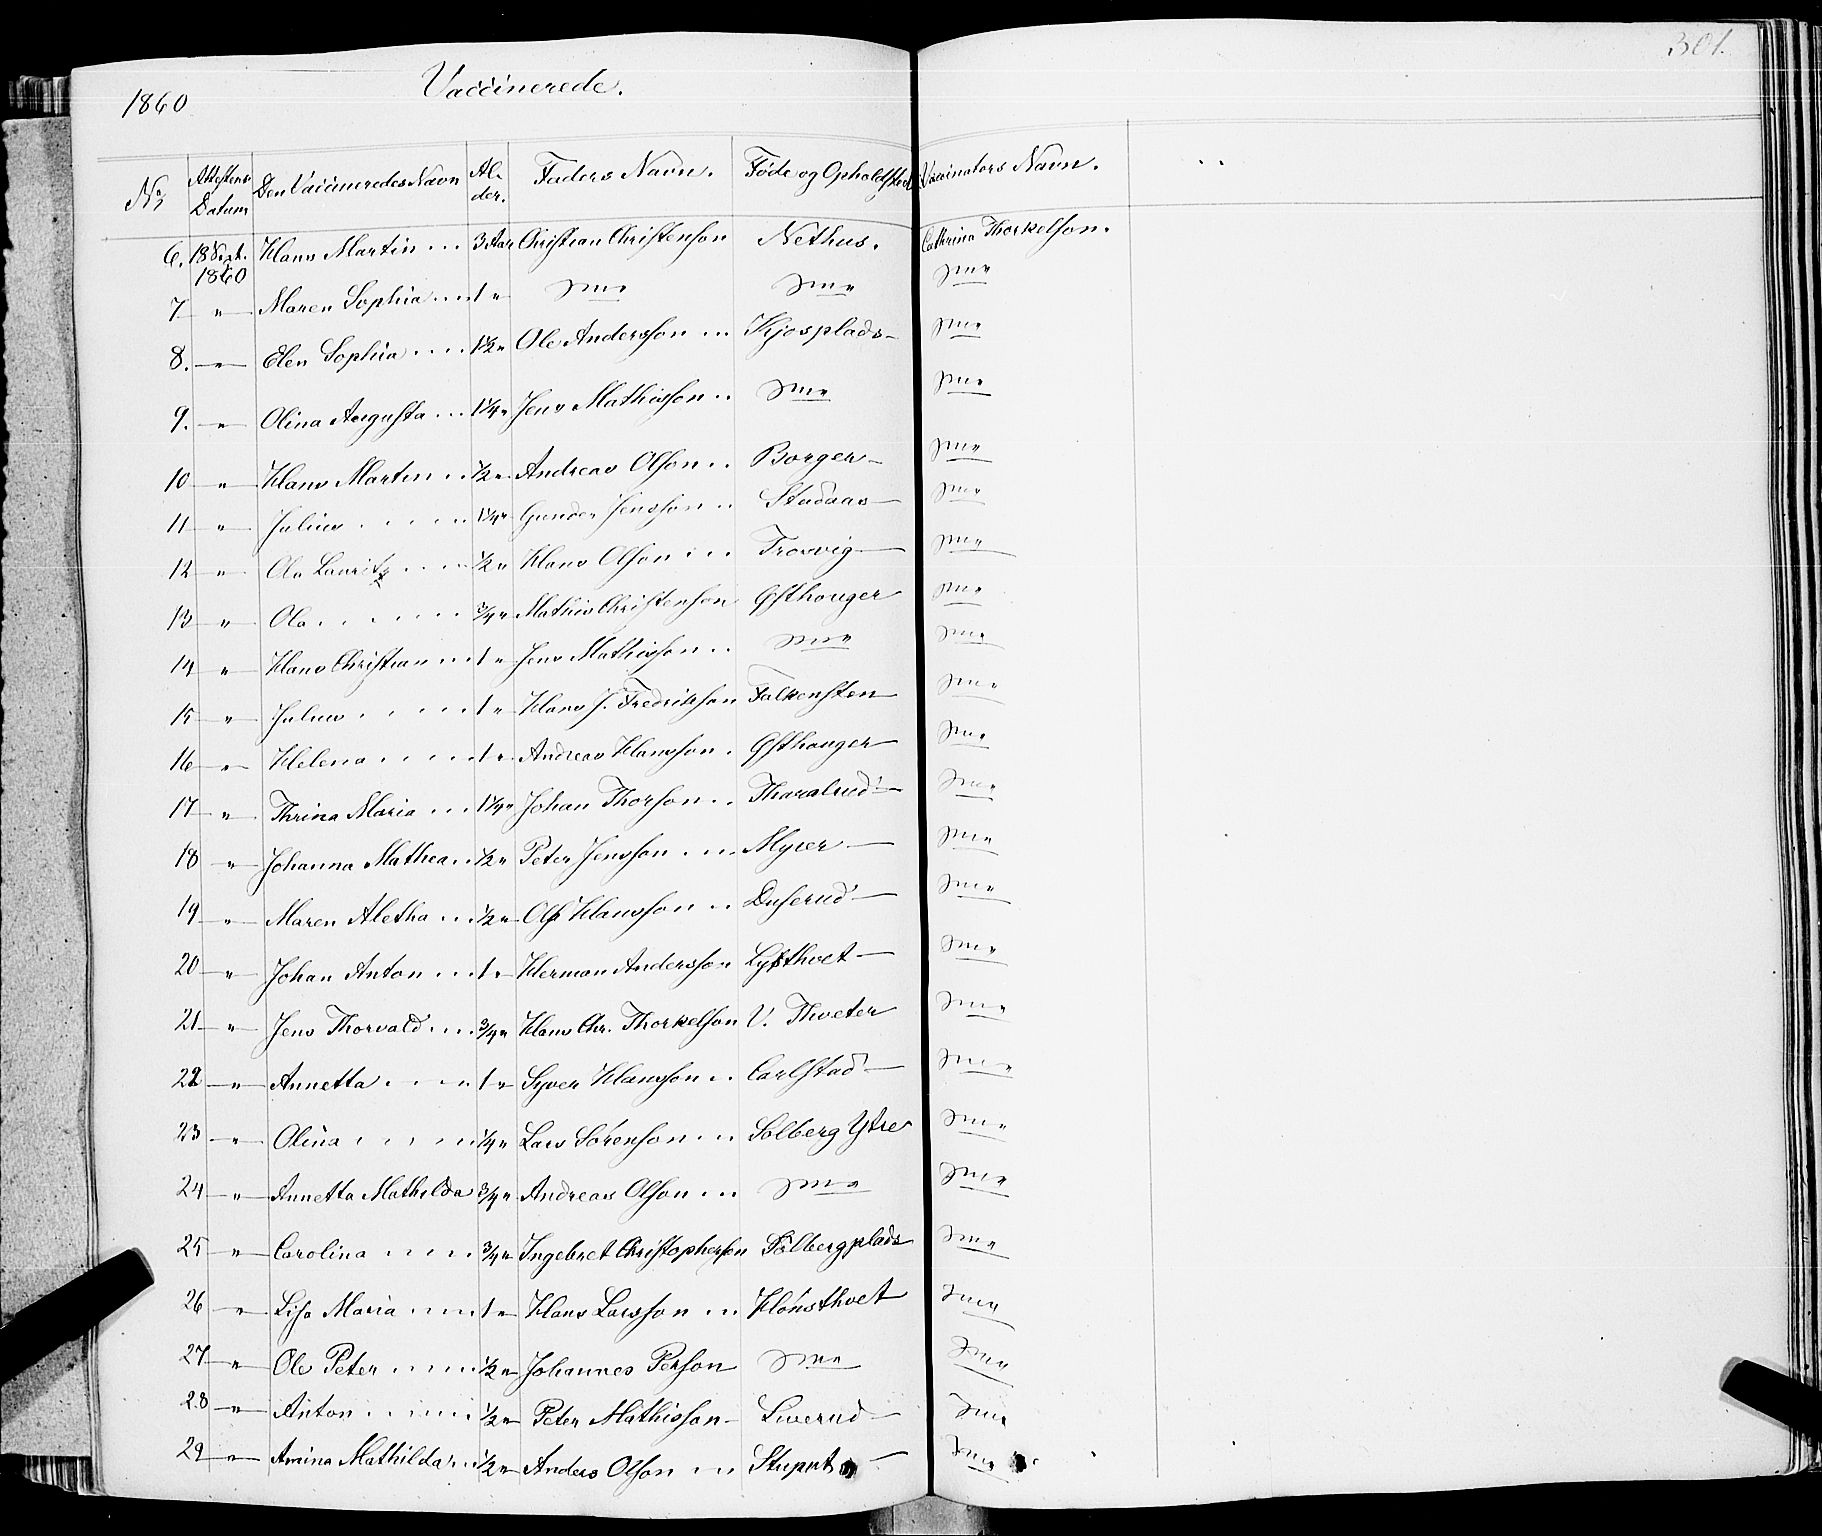 301.
1860 Vaccinerede.
No Attestens Datum Den Vaccineredes Navn Alder. Faders Navn. Føde og Opholdsted Vaccinators Navn.
6. 18 Sept. 1860 Hans Martin ... 3 Aar Christian Christenson Nethus. Cathrina Thorkelson.
7 " Maren Sophia ... 1 " Sme Sme Sme
8. " Elen Sophia .... 1½ " Ole Andersson ... Kjosplads Sme
9. " Olina Augusta ... 1¼ " Jens Mathisson .. Sme Sme
10 " Hans Martin .. ½ " Andreas Olson .. Borger Sme
11 " Julius ..... 1¼ " Gunder Jensson .. Stadaas Sme
12 " Ole Lauritz .... ½ " Hans Olson ... Trosvig Sme
13 " Ole ...... ¾ " Mathis Christenson Østhouger Sme
14 " Hans Christian ... 1 " Jens Mathisson .. Sme Sme
15 " Julius ..... 1 " Hans J. Fredrikson Falkensten Sme
16 " Helena ..... 1 " Andreas Hansson . Østhouger Sme
17 " Thrina Maria ... 1¼ " Johan Thorson .. Tharalrud Sme
18 " Johanna Mathea .. ½ " Peter Jensson ... Myrer Sme
19 " Maren Aletha ... ½ " Ole Hansson .. Duserud Sme
20 " Johan Anton ... 1 " Herman Andersson Lysthvet Sme
21 " Jens Thorvald .... ¾ " Hans Chr. Thorkelson V. Thveter Sme
22 " Annetta .... 1 " Syver Hansson .. Carlstad Sme
23 " Olina ..... ¼ " Lars Sörenson ... Solberg Ytre Sme
24 " Annetta Mathilda ¾ " Andreas Olson ... Sme Sme
25 " Carolina .... ¾ " Ingebret Christopherson Solbergplads Sme
26 " Lisa Maria .... 1 " Hans Larsson ... Hönsthvet Sme
27 " Ole Peter ..... ½ " Johannes Person Sme Sme
28 " Anton ...... ½ " Peter Mathisson Siverud Sme
29 " Amina Mathilda .. ½ " Anders Olson ... Sme